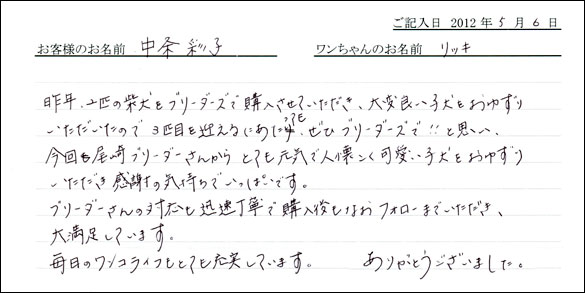 ご記入日 2012年5月6日
お客様のお名前 中条 彩子 ワンちゃんのお名前 リッキ
昨年、2匹の柴犬をブリーダーズで購入させていただき、大変良い子犬をおゆずり
いただいたので3匹目を迎えるにあたっても、ぜひブリーダーズで!!と思い、
今回も尾崎ブリーダーさんからとても元気で人懐こく可愛い子犬をおゆずり
いただき感謝の気持ちでいっぱいです。
ブリーダーさんの対応も迅速丁寧で購入後もなおフォローまでいただき、
大満足しています。
毎日のワンコライフもとても充実しています。 ありがとうございました。